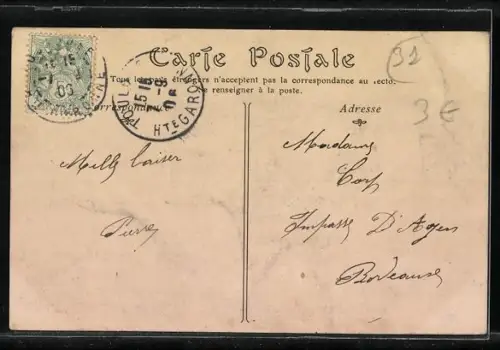 Carte Postale
31
Tous les pays étrangers n'acceptent pas la correspondance au recto.
se renseigner à la poste.
3€
Correspondance
Adresse
TOULOUSE
15 15
-9
06
HTE GARONNE
Mille baiser
Madame
Corp
Pierre
Impasse D'Agen
Bordeaux